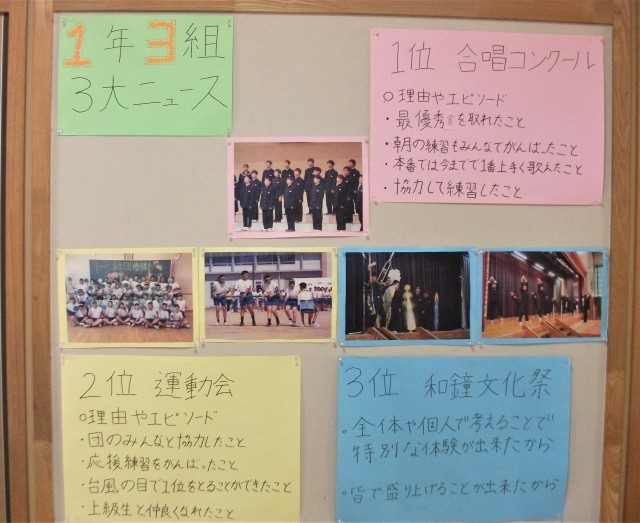 1年3組
3大ニュース
1位 合唱コンクール
○理由やエピソード
・最優秀賞を取れたこと
・朝の練習もみんなでがんばったこと
・本番では今までで1番上手く歌えたこと
・協力して練習したこと
2位 運動会
○理由やエピソード
・団のみんなと協力したこと
・応援練習をがんばったこと
・台風の目で1位をとることができたこと
・上級生と仲良くなれたこと
3位 和鐘文化祭
。全体や個人で考えることで
特別な体験が出来たから
。皆で盛り上げることが出来たから